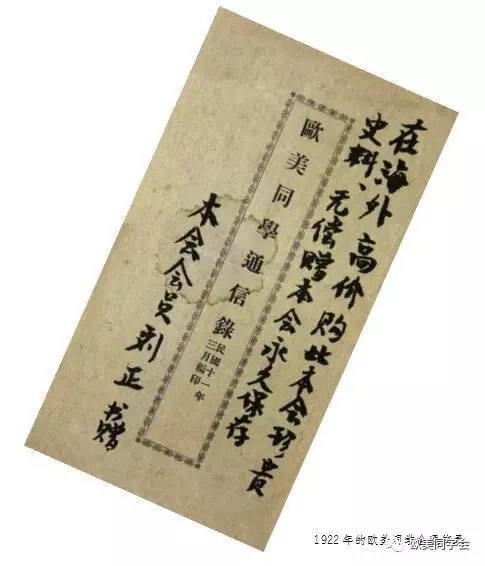 在海外高价购此本会珍贵
史料、无偿赠本会永久保存
歐美同學通信錄
民國十一年
三月編印
本会会员刘正 书赠
1922年的欧美同学会
欧美同学会